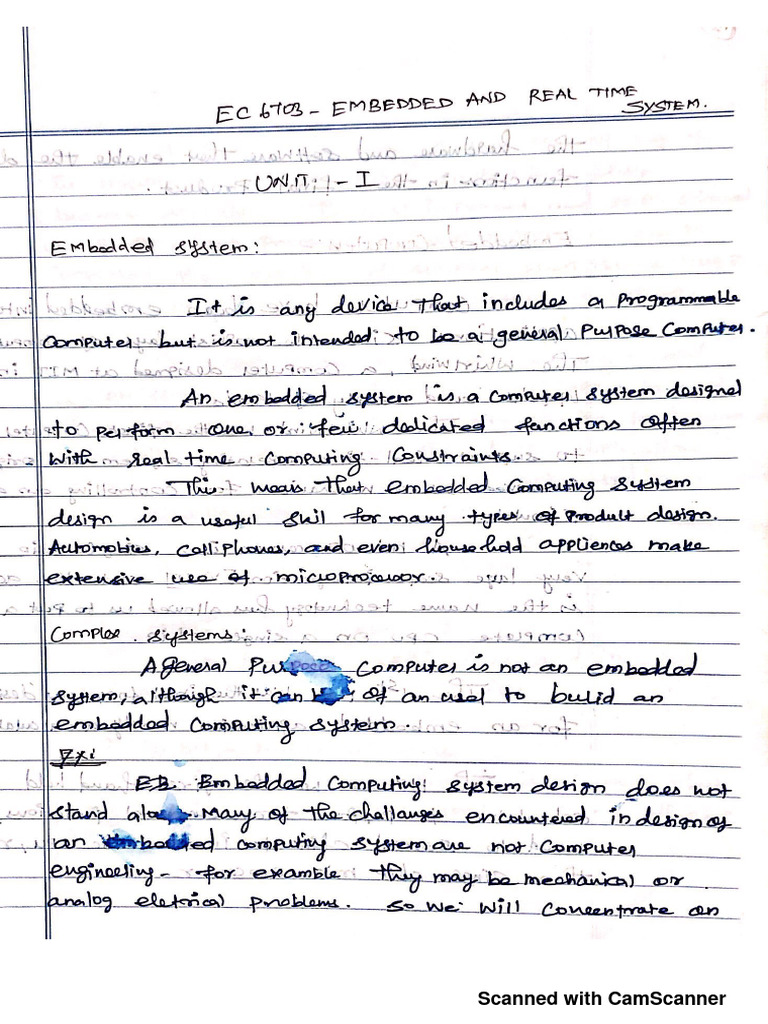 EC 6703 - EMBEDDED AND REAL TIME
SYSTEM.
UNIT - I
Embedded system:
It is any device that includes a Programmable
Computer but is not intended to be a general Purpose Computer.
An embedded system is a computer system designed
to perform one or few dedicated functions often
with real time Computing Constraints.
This meais that embedded Computing system
design is a useful skil for many types of Product design.
Automobies, Cell phones, and even household appliences make
extensive use of microprocessor.
Complex systems:
A general Purpose Computer is not an embedded
system, although it can be of an used to bulid an
embedded Computing system.
Embedded Computing system design does not
stand Many of the challanges encountered in design of
an embedded computing system are not Computer
engineering - for examble they may be mechanical or
analog eletrical Problems. So we will Concentrate on
Scanned with CamScanner